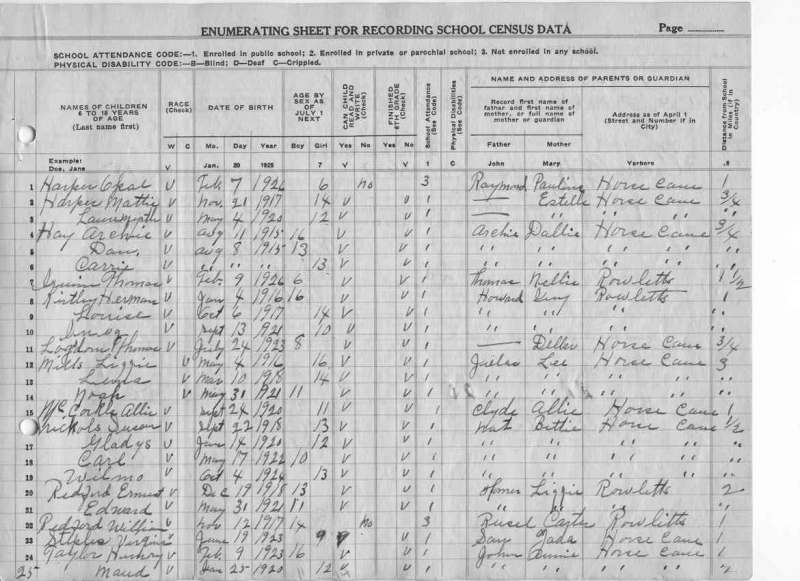 ENUMERATING SHEET FOR RECORDING SCHOOL CENSUS DATA Page
SCHOOL ATTENDANCE CODE:—1. Enrolled in public school; 2. Enrolled in private or parochial school; 3. Not enrolled in any school.
PHYSICAL DISABILITY CODE:—B—Blind; D—Deaf C—Crippled.
NAMES OF CHILDREN 6 TO 18 YEARS OF AGE (Last name first)
RACE (Check)
W C
DATE OF BIRTH
Mo. Day Year
AGE BY SEX AS OF JULY 1 NEXT
Boy Girl
CAN CHILD READ AND WRITE (Check)
Yes No
FINISHED 8TH GRADE (Check)
Yes No
School Attendance (See Code)
Physical Disabilities (See Code)
NAME AND ADDRESS OF PARENTS OR GUARDIAN
Record first name of father and first name of mother, or full name of mother or guardian
Father Mother
Address as of April 1 (Street and Number if in City)
Distance from School in Miles (if in Country)
Example: Doe, Jane V Jan. 20 1925 7 V V 1 C John Mary Yarboro .8
1 Harper Opal V Feb 7 1926 6 no 3 Raymond Pauline Horse Cave 1
2 Harper Mattie V Nov. 21 1917 14 V V 1 — Estelle Horse Cave 3/4
3 V May 4 1920 12 V V 1 — " " " " "
4 Hay Archie V Aug 11 1915 16 V 1 Archie Dallie Horse Cave 3/4
5 Dan V Aug 8 1915 13 V 1 " " " " "
6 Carrie V " " " 13 V V 1 " " " " "
7 Thomas V Feb. 9 1926 6 V V 1 Thomas Nellie Rowletts 1 1/2
8 Kirtley Herman V Jan 4 1916 16 V 1 Howard Rowletts 1
9 V Oct 6 1917 14 V V 1 " " " "
10 V Sept 13 1921 10 V V 1 " " "
11 Thomas V July 24 1923 8 V 1 — Horse Cave 3/4
12 Mills Lizzie V May 4 1916 16 V V 1 Lee Horse Cave 3
13 V Mar 10 1918 14 V V 1 " " " " "
14 V May 31 1921 11 V V 1 " " " " "
15 McCorkle Allie V Sept 24 1920 11 V V 1 Clyde Allie Horse Cave 1
16 Nichols Susan V Sept 22 1918 13 V V 1 Nat Bettie Horse Cave 1/2
17 Gladys V Jan 14 1920 12 V V " " " " "
18 Carl V May 17 1922 10 V V 1 " " " " "
19 Wilmo V Oct 4 1924 13 V V 1 " " " " "
20 Redford Ernest V Dec 19 1918 13 V V 1 Homer Lizzie Rowletts 2
21 Edward V May 31 1921 11 V V 1 " " " "
22 Redford William V Nov 12 1917 14 no 3 Carter Rowletts 1
23 V June 19 1923 9 V 1 Sam Horse Cave 1
24 Taylor V Feb. 9 1923 16 V V 1 John Annie Horse Cave 1
25 Maud V Jan 25 1920 12 V V 1 " " " "